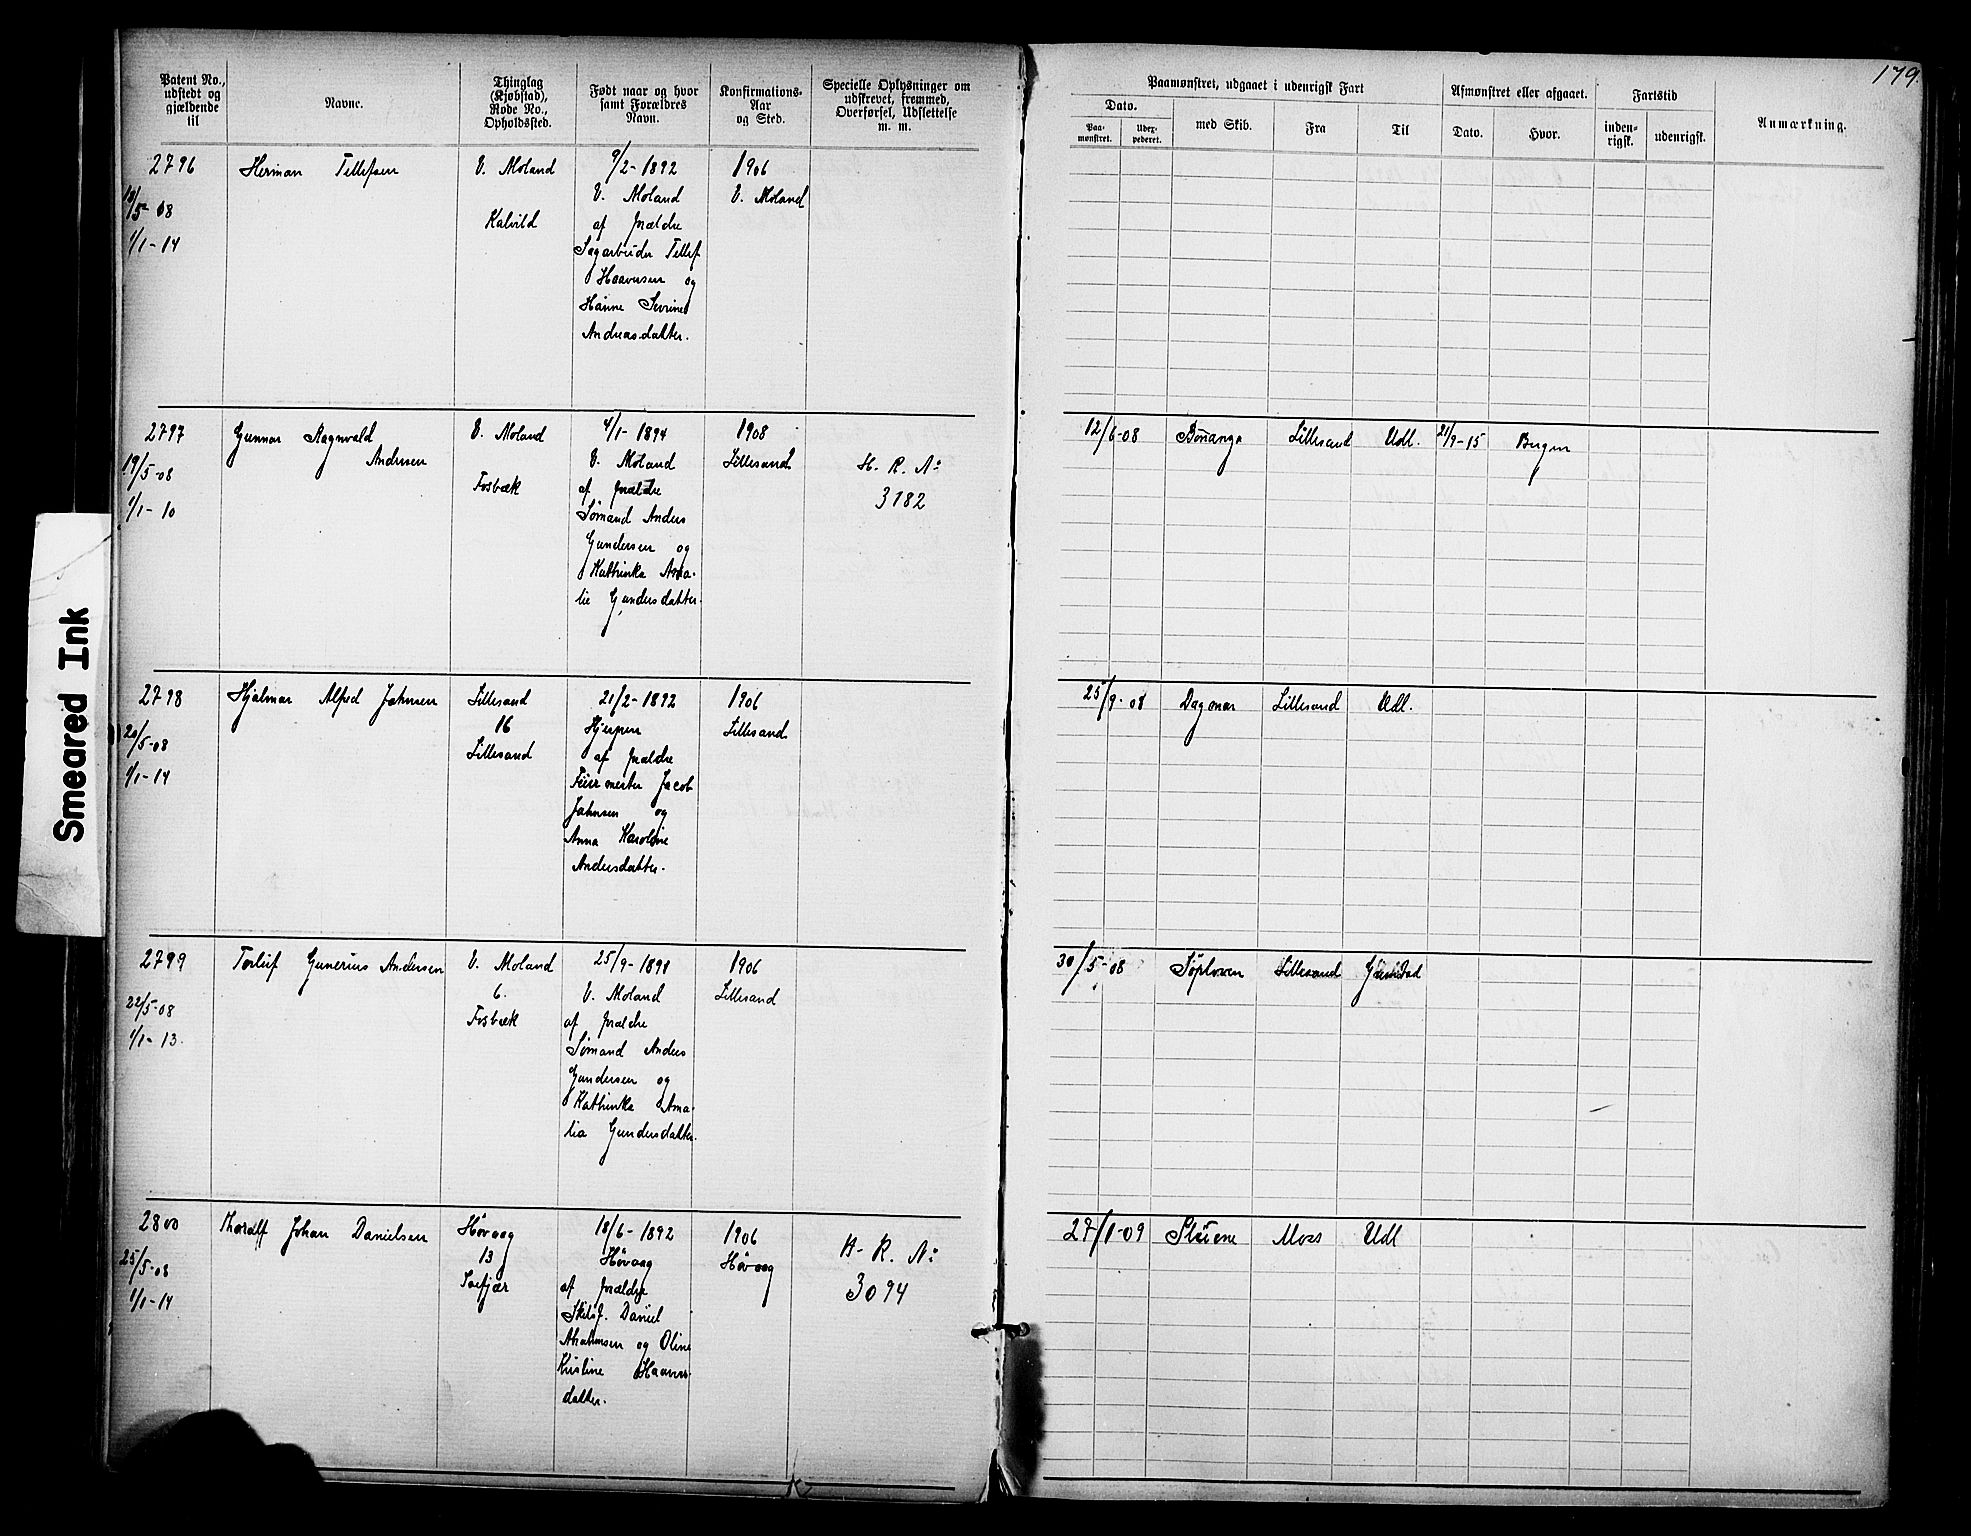 179
Patent No., udstedt og gjældende til
Navne.
Thinglag (Kjøbstad), Rode No., Opholdssted.
Født naar og hvor samt Forældres Navn.
Konfirmations-Aar og Sted.
Specielle Oplysninger om udskrevet, fremmed, Overførsel, Udslettelse m. m.
Paamønstret, udgaaet i udenrigsk Fart
Dato.
Paa-mønstret.
Udex-pederet.
med Skib.
Fra
Til
Afmønstret eller afgaaet.
Dato.
Hvor.
Fartstid
inden-rigsk.
udenrigsk.
Anmærkning.
2796
18/5-08
1/1-14
Herman Tellefsen
V. Moland
Kalvild
9/2-1892
V. Moland
af Forældre
Sagarbeider Tellef
Haavorsen og
Hanne Sevrine
Andreasdatter.
1906
V. Moland
2797
19/5-08
1/1-10
Gunnar Ragnvald
Andersen
V. Moland
Fosbæk
4/1-1894
V. Moland
af Forældre
Sømand Anders
Gundersen og
Kathinka Ama-
lie Gundersdatter.
1908
Lillesand
H. R. No
3182
12/6-08
Bonanza
Lillesand
Udl.
21/9-15
Bergen
2798
20/5-08
1/1-14
Hjalmar Alfred Jahnsen
Lillesand
16
Lillesand
21/2-1892
af Forældre
Feiermester Jacob
Jahnsen og
Anna Karoline
Andersdatter.
1906
Lillesand
25/9-08
Dagmar
Lillesand
Udl.
2799
22/5-08
1/1-13.
Torleif Gunerius Andersen
V. Moland
6.
Fosbæk
25/9-1891
V. Moland
af Forældre
Sømand Anders
Gundersen og
Kathinka Ama-
lia Gundersdatter.
1906
Lillesand
30/5-08
Lillesand
Grimstad
2800
25/5-08
1/1-14
Thoralf Johan Danielsen
Høvaag
13
18/6-1892
Høvaag
af Forældre
Daniel
og Oline
Kristine Haavors-
datter.
1906
Høvaag
H. R. No
3094
27/1-09
Moss
Udl
Smeared Ink